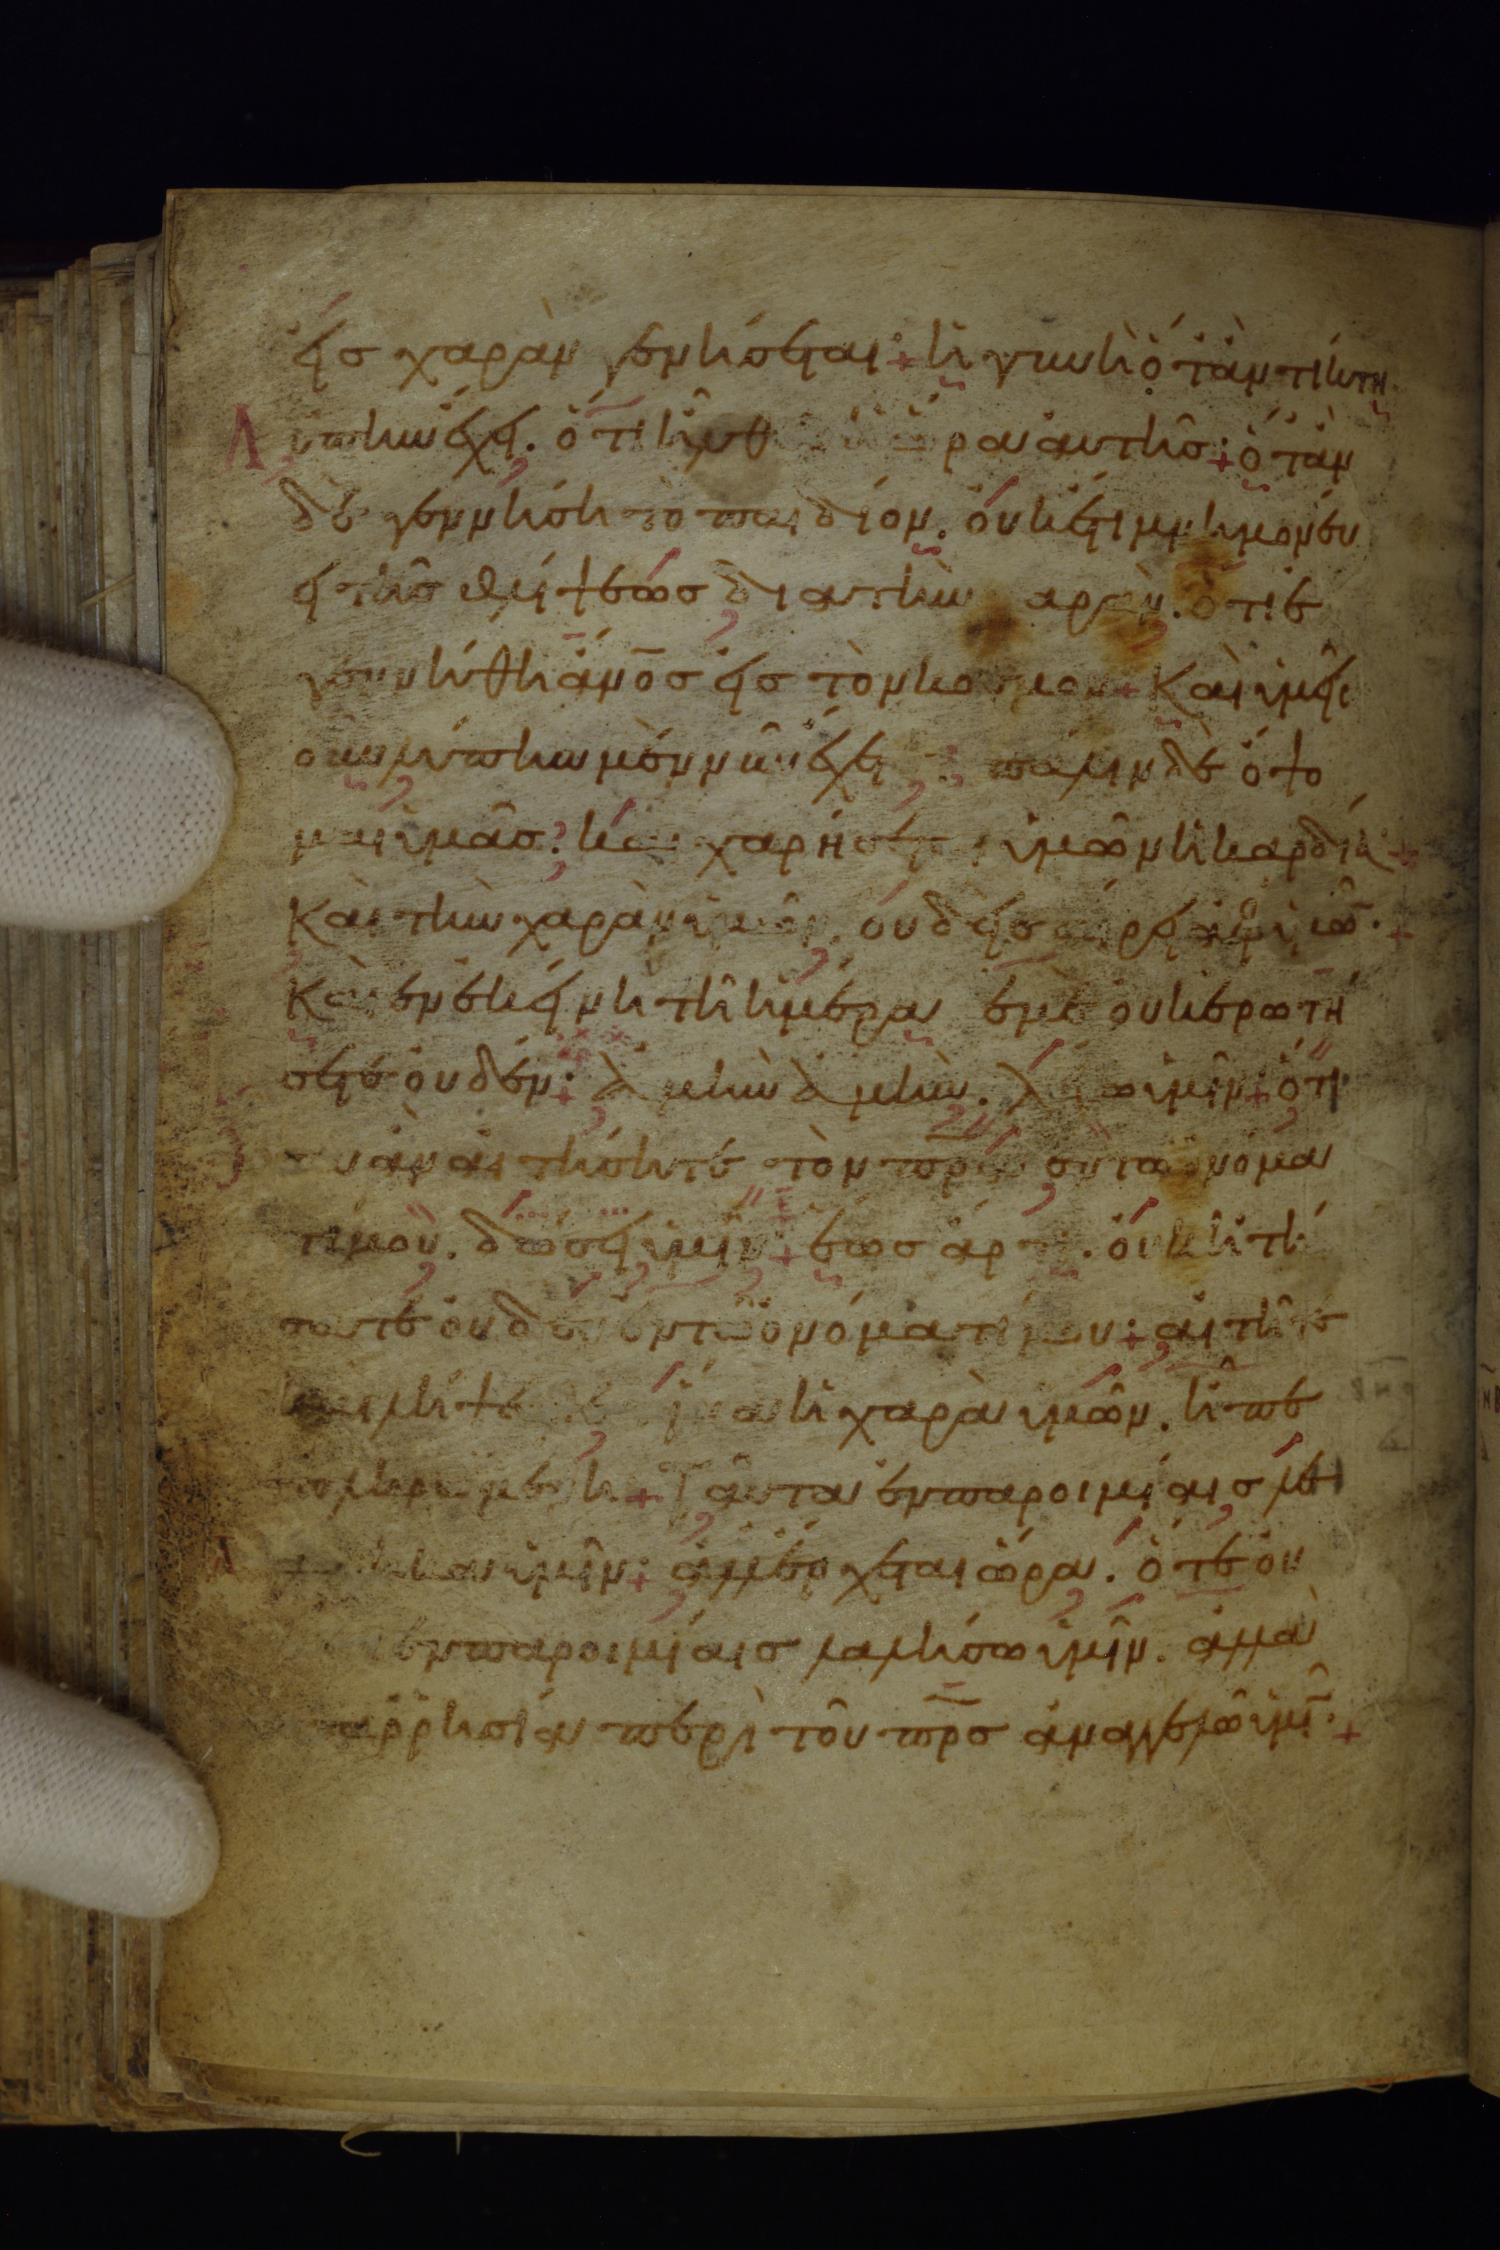 εἰς χαρὰν γενήσεται + ἡ γυνὴ ὅταν τίκτη
λύπην ἔχει. ὅτι ἦλθ ὥρα αὐτῆς + ὅταν
δὲ γεννήση τὸ παιδίον. οὐκέτι μνημονεύ
ει τῆς θλίψεως διὰ τὴν χαράν. ὅτι ἐ
γεννήθη ἄνος εἰς τὸν κόσμον + Καὶ ὑμεῖ
οὖν λύπην μὲν νῦν ἔχετε πάλιν δὲ ὄψο
μαι ὑμᾶς. καὶ χαρήσεται ὑμῶν ἡ καρδία +
Καὶ τὴν χαρὰν ὑμῶν. οὐδεὶς αἴρει ἀφ ὑμῶ +
Καὶ ἐν ἐκείνη τῆ ἡμέρα ἐμὲ οὐκ ἐρωτή
σετε οὐδέν + ἀμὴν ἀμὴν. λέγω ὑμῖν + ὅτι
ἂν αἰτήσητε τὸν πρα ἐν τῶ ὀνόμα
τί μου. δώσει ὑμῖν + ἕως ἄρτι. οὐκ ἠτή
σατε οὐδὲν ἐν τῶ ὀνόματί μου + αἰτεῖτε
καὶ λήψεσθε ἵνα ἡ χαρὰ ὑμῶν. ἦ πε
πληρωμένη + Ταῦτα ἐν παροιμίαις λε
λάληκα ὑμῖν + ἀλλ ἔρχεται ὥρα. ὅτε οὐ
κέτι ἐν παροιμίαις λαλήσω ὑμῖν. ἀλλὰ
παρρησία περὶ τοῦ πρς ἀναγγελῶ ὑμῖ +